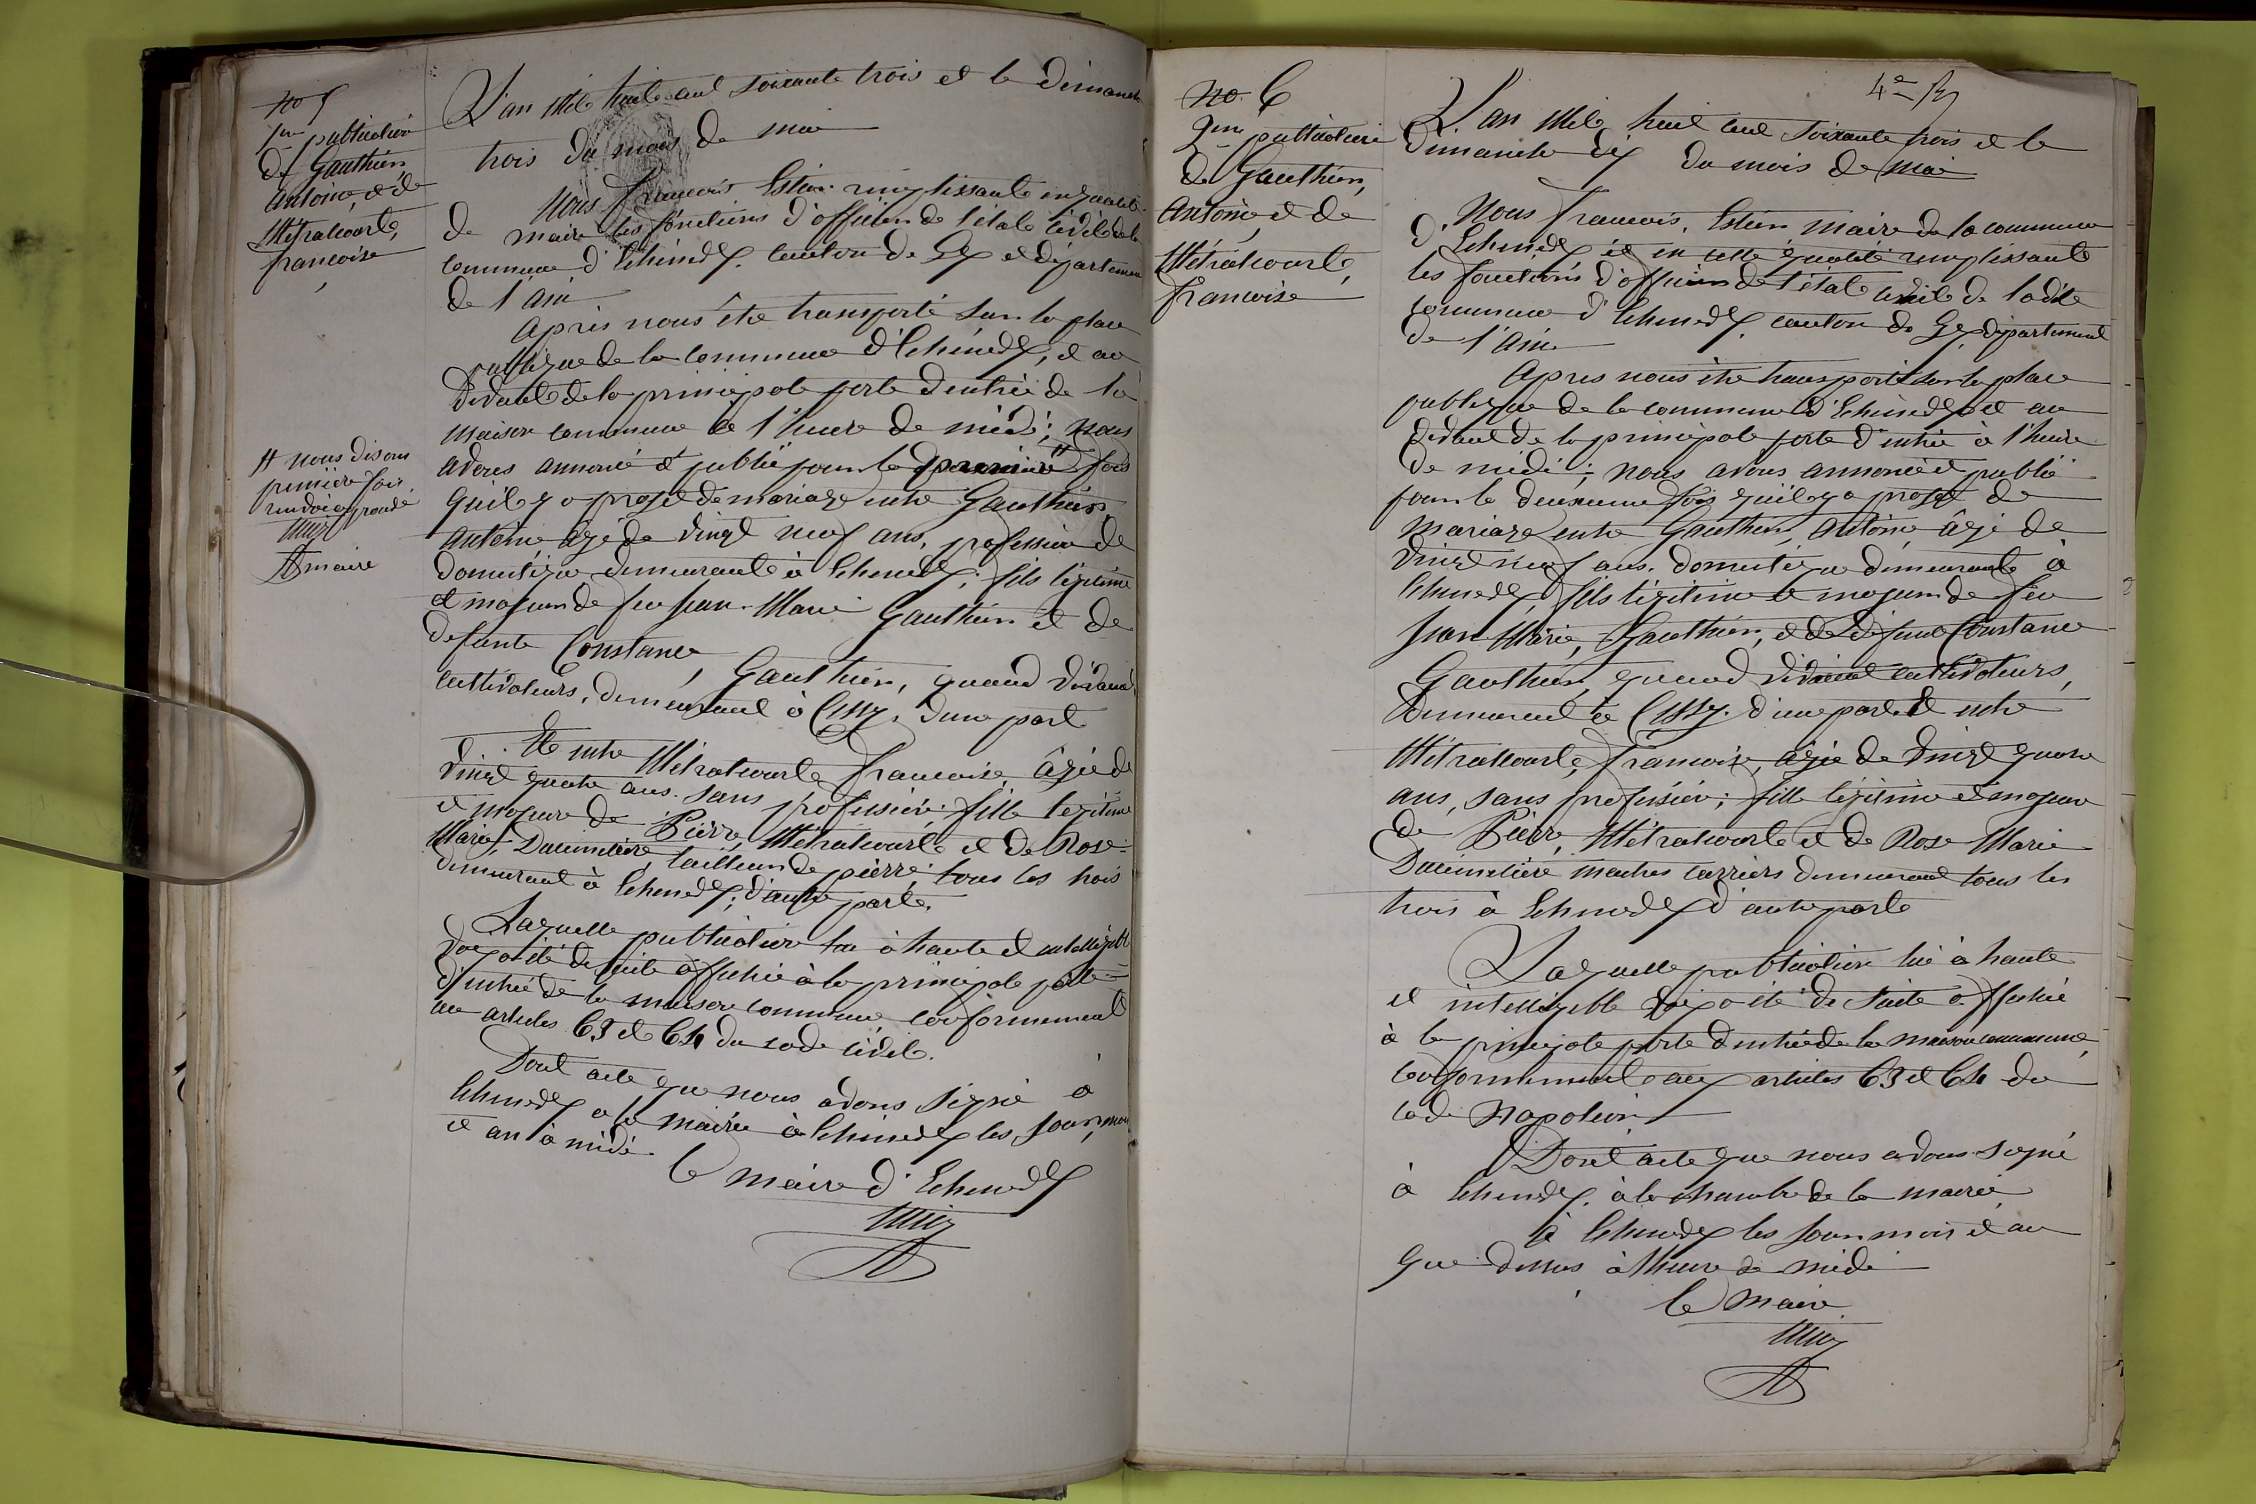 no 5
1re publication
de Gauthier
antoine, et de
Métralcourt,
françoise
L'an mil huit cent soixante trois et le dimanche
trois du mois de mai
Nous françois Estier remplissant en qualité
de maire les fonctions d'officier de l'état civil de la
commune d'Echenevex, canton de Gex et département
de l'ain
après nous être transporté sur la place
publique de la commune d'Echenevex, et au
devant de la principale porte d'entrée de la
maison commune à l'heure de midi; nous
avons annoncé et publié pour la première fois
# nous disons
première fois
renvoi approuvé
maire
qu'il y a projet de mariage entre Gauthier,
antoine âgé de vingt neuf ans, profession de
domestique demeurant à Echenevex, fils légitime
et majeur de feu Jean-Marie Gauthier et de
defunte Constance, Gauthier, quand vivaient
cultivateurs, demeurant à Cessy, d'une part
Et entre Métralcourt françoise, âgée de
vingt quatre ans. sans profession; fille légitime
et majeure de Pierre, Métralcourt et de Rose-
Marie, Ducimetière, tailleur de pierre; tous les trois
demeurant à Echenevex; d'autre part.
Laquelle publication lue à haute et intelligible
voix a été de suite affichée à la principale porte
d'entrée de la maison commune conformément
au articles 63 et 64 du code civil.
Dont acte que nous avons signé à
Echenevex a la mairie à Echenevex les jour, mois
et an à midi.
le maire d'Echenevex
4e
no. 6
2me publication
de Gauthier,
antoine et de
Métralcourt,
françoise
L'an mil huit cent soixante trois et le
dimanche dix du mois de mai
Nous françois, Estier maire de la commune
d'Echenevex et en cette qualité remplissant
les fonctions d'officier de l'état civil de ladite
commune d'Echenevex, canton de Gex, département
de l'ain
Après nous être transporté sur la place
publique de la commune d'Echenevex et au
devant de la principale porte d'entrée à l'heure
de midi; nous avons annoncé et publié
pour la deuxieme fois qu'il y a projet de
mariage entre Gauthier, antoine âgé de
vingt neuf ans. domestique demeurant à
Echenevex, fils légitime et majeur de feu
Jean Marie, Gauthier, et de défunte Constance
Gauthier, quand vivaient cultivateurs,
demeurant à Cessy. d'une part et entre
Métralcourt, françoise, âgée de vingt quatre
ans, sans profession; fille légitime et majeure
de Pierre, Métralcourt et de Rose Marie
Ducimetière maitres carriers demeurant tous les
trois à Echenevex d'autre part
Laquelle publication lue à haute
et intelligible voix a été de suite affichée
à la principale porte d'entrée de la maison commune,
conformément aux articles 63 et 64 du
code Napoléon
Dont acte que nous avons signé
à Echenevex. à la chambre de la mairie
à Echenevex les jour mois et an
que dessus à l'heure de midi
le maire